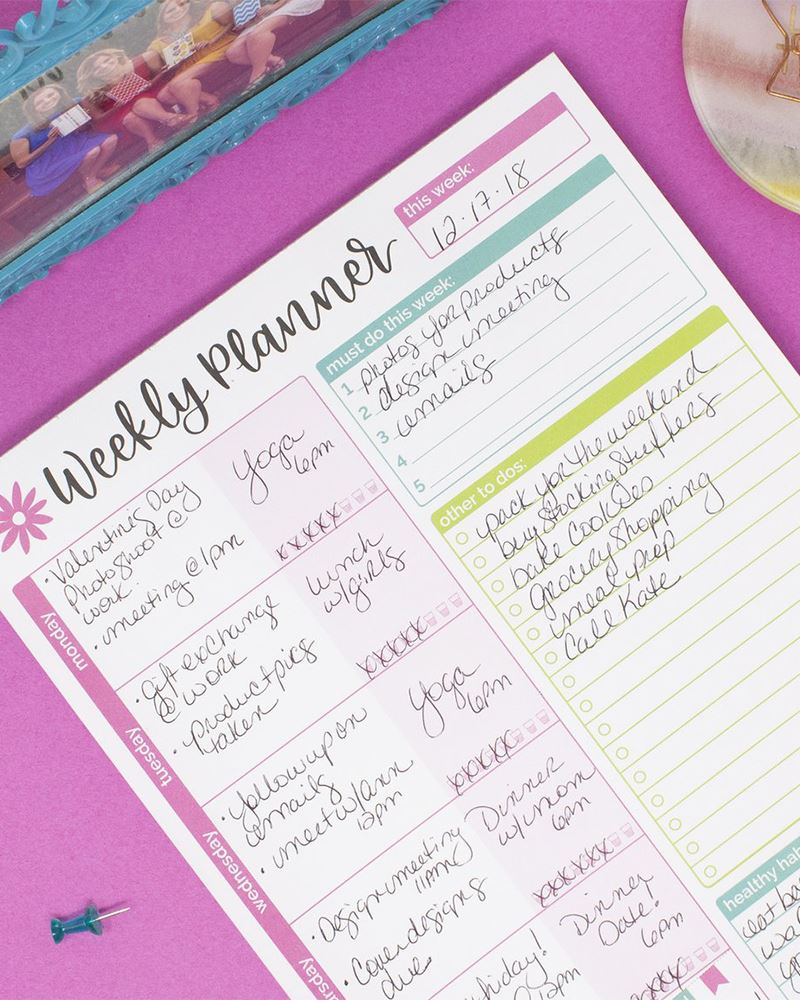 Weekly Planner
this week:
12.17.18
must do this week:
1 photos for products
2 design meeting
3 emails
4
5
other to dos:
pack for the weekend
buy stocking stuffers
bake cookies
grocery shopping
meal prep
Call Kate
monday
• Valentines Day
Photoshoot @
work.
• meeting @ 1pm
Yoga
6pm
xxxxx
tuesday
• gift exchange
@ work
• Product pics
taken
lunch
w/girls
xxxxx
wednesday
• follow up on
emails
• meet w/ann
12pm
Yoga
6pm
xxxxx
thursday
• Design meeting
1pm
• Cover designs
due.
Dinner
w/mom
6pm
xxxxxx
Dinner
Date!
6pm
healthy hab
eat